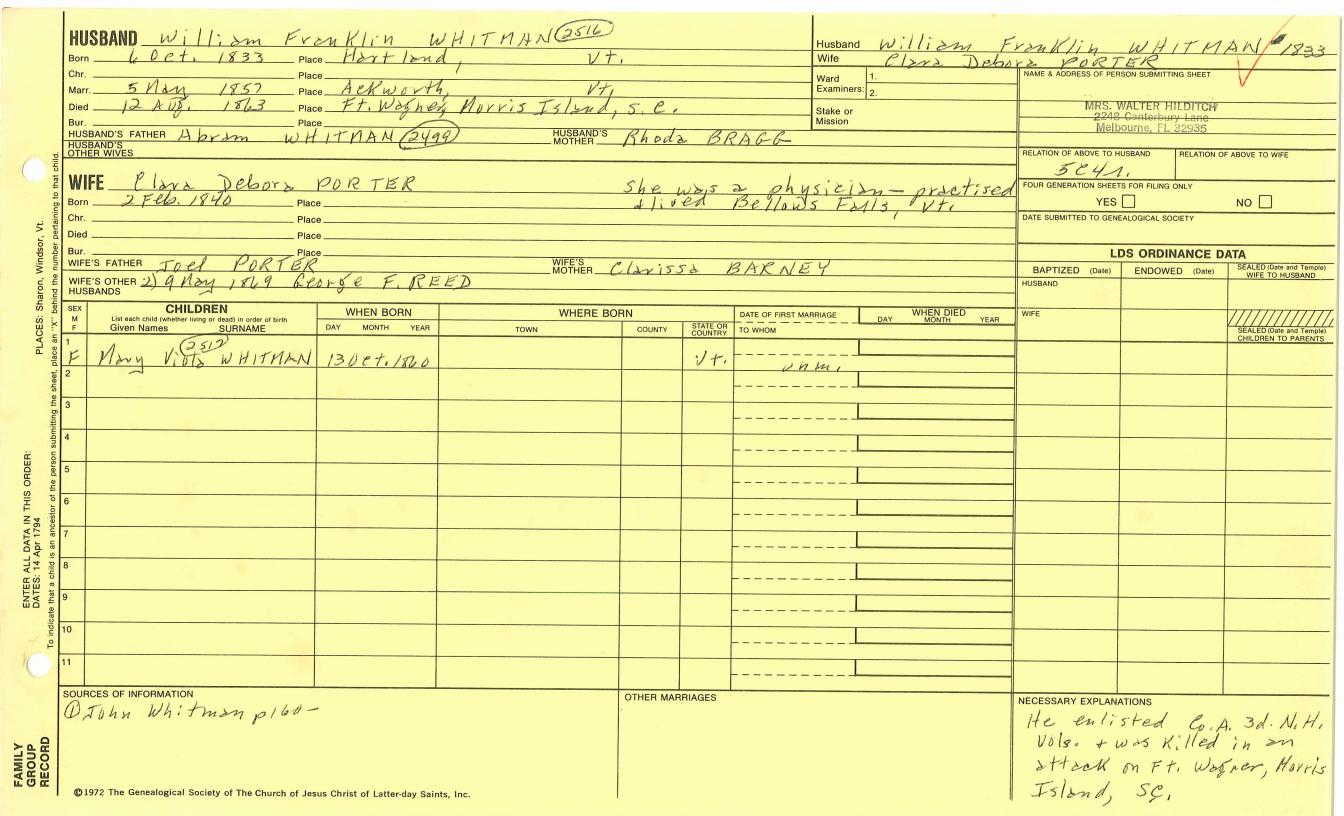 HUSBAND William Franklin WHITMAN 2516
Born 6 Oct. 1833 Place Hartland, Vt.
Chr. Place
Marr. 5 May 1857 Place Ackworth, Vt,
Died 12 Aug. 1863 Place Ft. Wagner, Morris Island, S.C.
Bur. Place
HUSBAND'S FATHER Abram WHITMAN 2499 HUSBAND'S MOTHER Rhoda BRAGG
HUSBAND'S OTHER WIVES
WIFE Clara Debora PORTER She was a physician - practised
Born 2 Feb. 1840 Place & lived Bellows Falls, Vt.
Chr. Place
Died Place
Bur. Place
WIFE'S FATHER Joel PORTER WIFE'S MOTHER Clarissa BARNEY
WIFE'S OTHER HUSBANDS 2) 9 May 1869 George F. REED
Husband William Franklin WHITMAN 1833
Wife Clara Debora PORTER
Ward Examiners: 1.
2.
Stake or Mission
NAME & ADDRESS OF PERSON SUBMITTING SHEET
MRS. WALTER HILDITCH
2242 Canterbury Lane
Melbourne, FL 32935
RELATION OF ABOVE TO HUSBAND RELATION OF ABOVE TO WIFE
5C4r.
FOUR GENERATION SHEETS FOR FILING ONLY
YES NO
DATE SUBMITTED TO GENEALOGICAL SOCIETY
LDS ORDINANCE DATA
BAPTIZED (Date) ENDOWED (Date) SEALED (Date and Temple) WIFE TO HUSBAND
HUSBAND
WIFE
SEALED (Date and Temple) CHILDREN TO PARENTS
SEX M F CHILDREN WHEN BORN WHERE BORN DATE OF FIRST MARRIAGE WHEN DIED
List each child (whether living or dead) in order of birth
Given Names SURNAME DAY MONTH YEAR TOWN COUNTY STATE OR COUNTRY TO WHOM DAY MONTH YEAR
1 F Mary Viola 2517 WHITMAN 13 Oct. 1860 Vt. unm.
2
3
4
5
6
7
8
9
10
11
SOURCES OF INFORMATION
① John Whitman p160-
OTHER MARRIAGES
NECESSARY EXPLANATIONS
He enlisted Co. A. 3d. N.H.
Vols. & was killed in an
attack on Ft. Wagner, Morris
Island, SC.
©1972 The Genealogical Society of The Church of Jesus Christ of Latter-day Saints, Inc.
FAMILY GROUP RECORD
ENTER ALL DATA IN THIS ORDER:
DATES: 14 Apr 1794
PLACES: Sharon, Windsor, Vt.
To indicate that a child is an ancestor of the person submitting the sheet, place an "X" behind the number pertaining to that child.